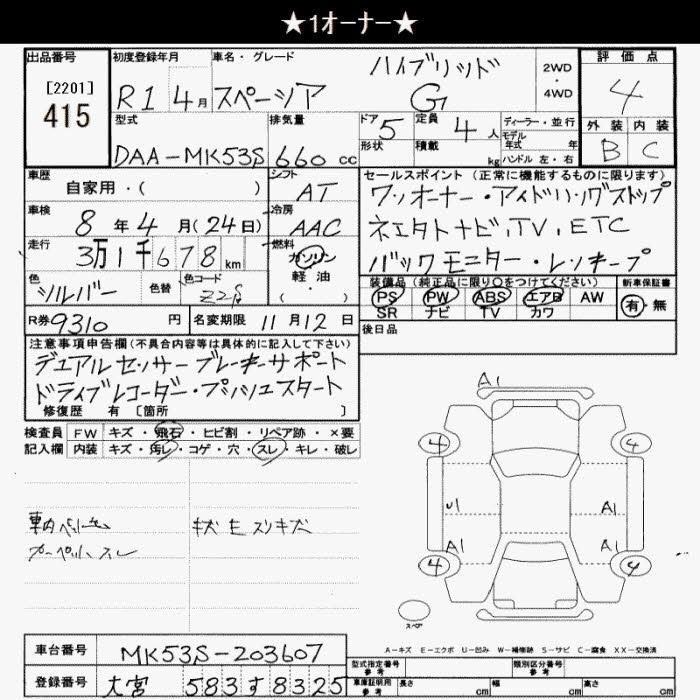 ★1オーナー★
出品番号 初度登録年月 車名・グレード 評価点
[2201]
415
R1 4月 スペーシア ハイブリッド G
2WD
・
4WD
4
型式 排気量 ドア 定員 ディーラー・並行
DAA-MK53S 660cc 5 4人
モデル年式 年
形状 積載 kg ハンドル 左・右
外装 内装
B C
車歴 シフト セールスポイント (正常に機能するものに限ります)
自家用・( ) AT ワンオーナー・アイドリングストップ
車検 冷房
8年4月(24日) AAC ネエタトナビ,TV,ETC
走行 燃料
3万1千678km ガソリン バックモニター・レンキープ
軽油
・( )
色 色替 色コード
シルバー Z2S
装備品 (純正品に限り〇をつけてください) 新車保証書
PS PW ABS エアB AW 有・無
SR ナビ TV カワ
R券 9310円 名変期限 11月12日
後日品
注意事項申告欄(不具合内容等は具体的に記入して下さい)
デュアルセンサーブレーキサポート
ドライブレコーダー・プッシュスタート
修復歴 有 [箇所 ]
検査員 FW キズ・飛石・ヒビ割・リペア跡・×要
記入欄 内装 キズ・汚レ・コゲ・穴・スレ・キレ・破レ
A1
4 4
U1 A1
A1 A1
4 4
キズ E スリキズ
カーペット、スレ
スペア
A-キズ E-エクボ U-凹み W-補修跡 S-サビ C-腐食 XX-交換済
車台番号 MK53S-203607
型式指定番号 参考 類別区分番号 参考
登録番号 大宮 583す8325
車庫証明用 参考 長さ cm 幅 cm 高さ cm